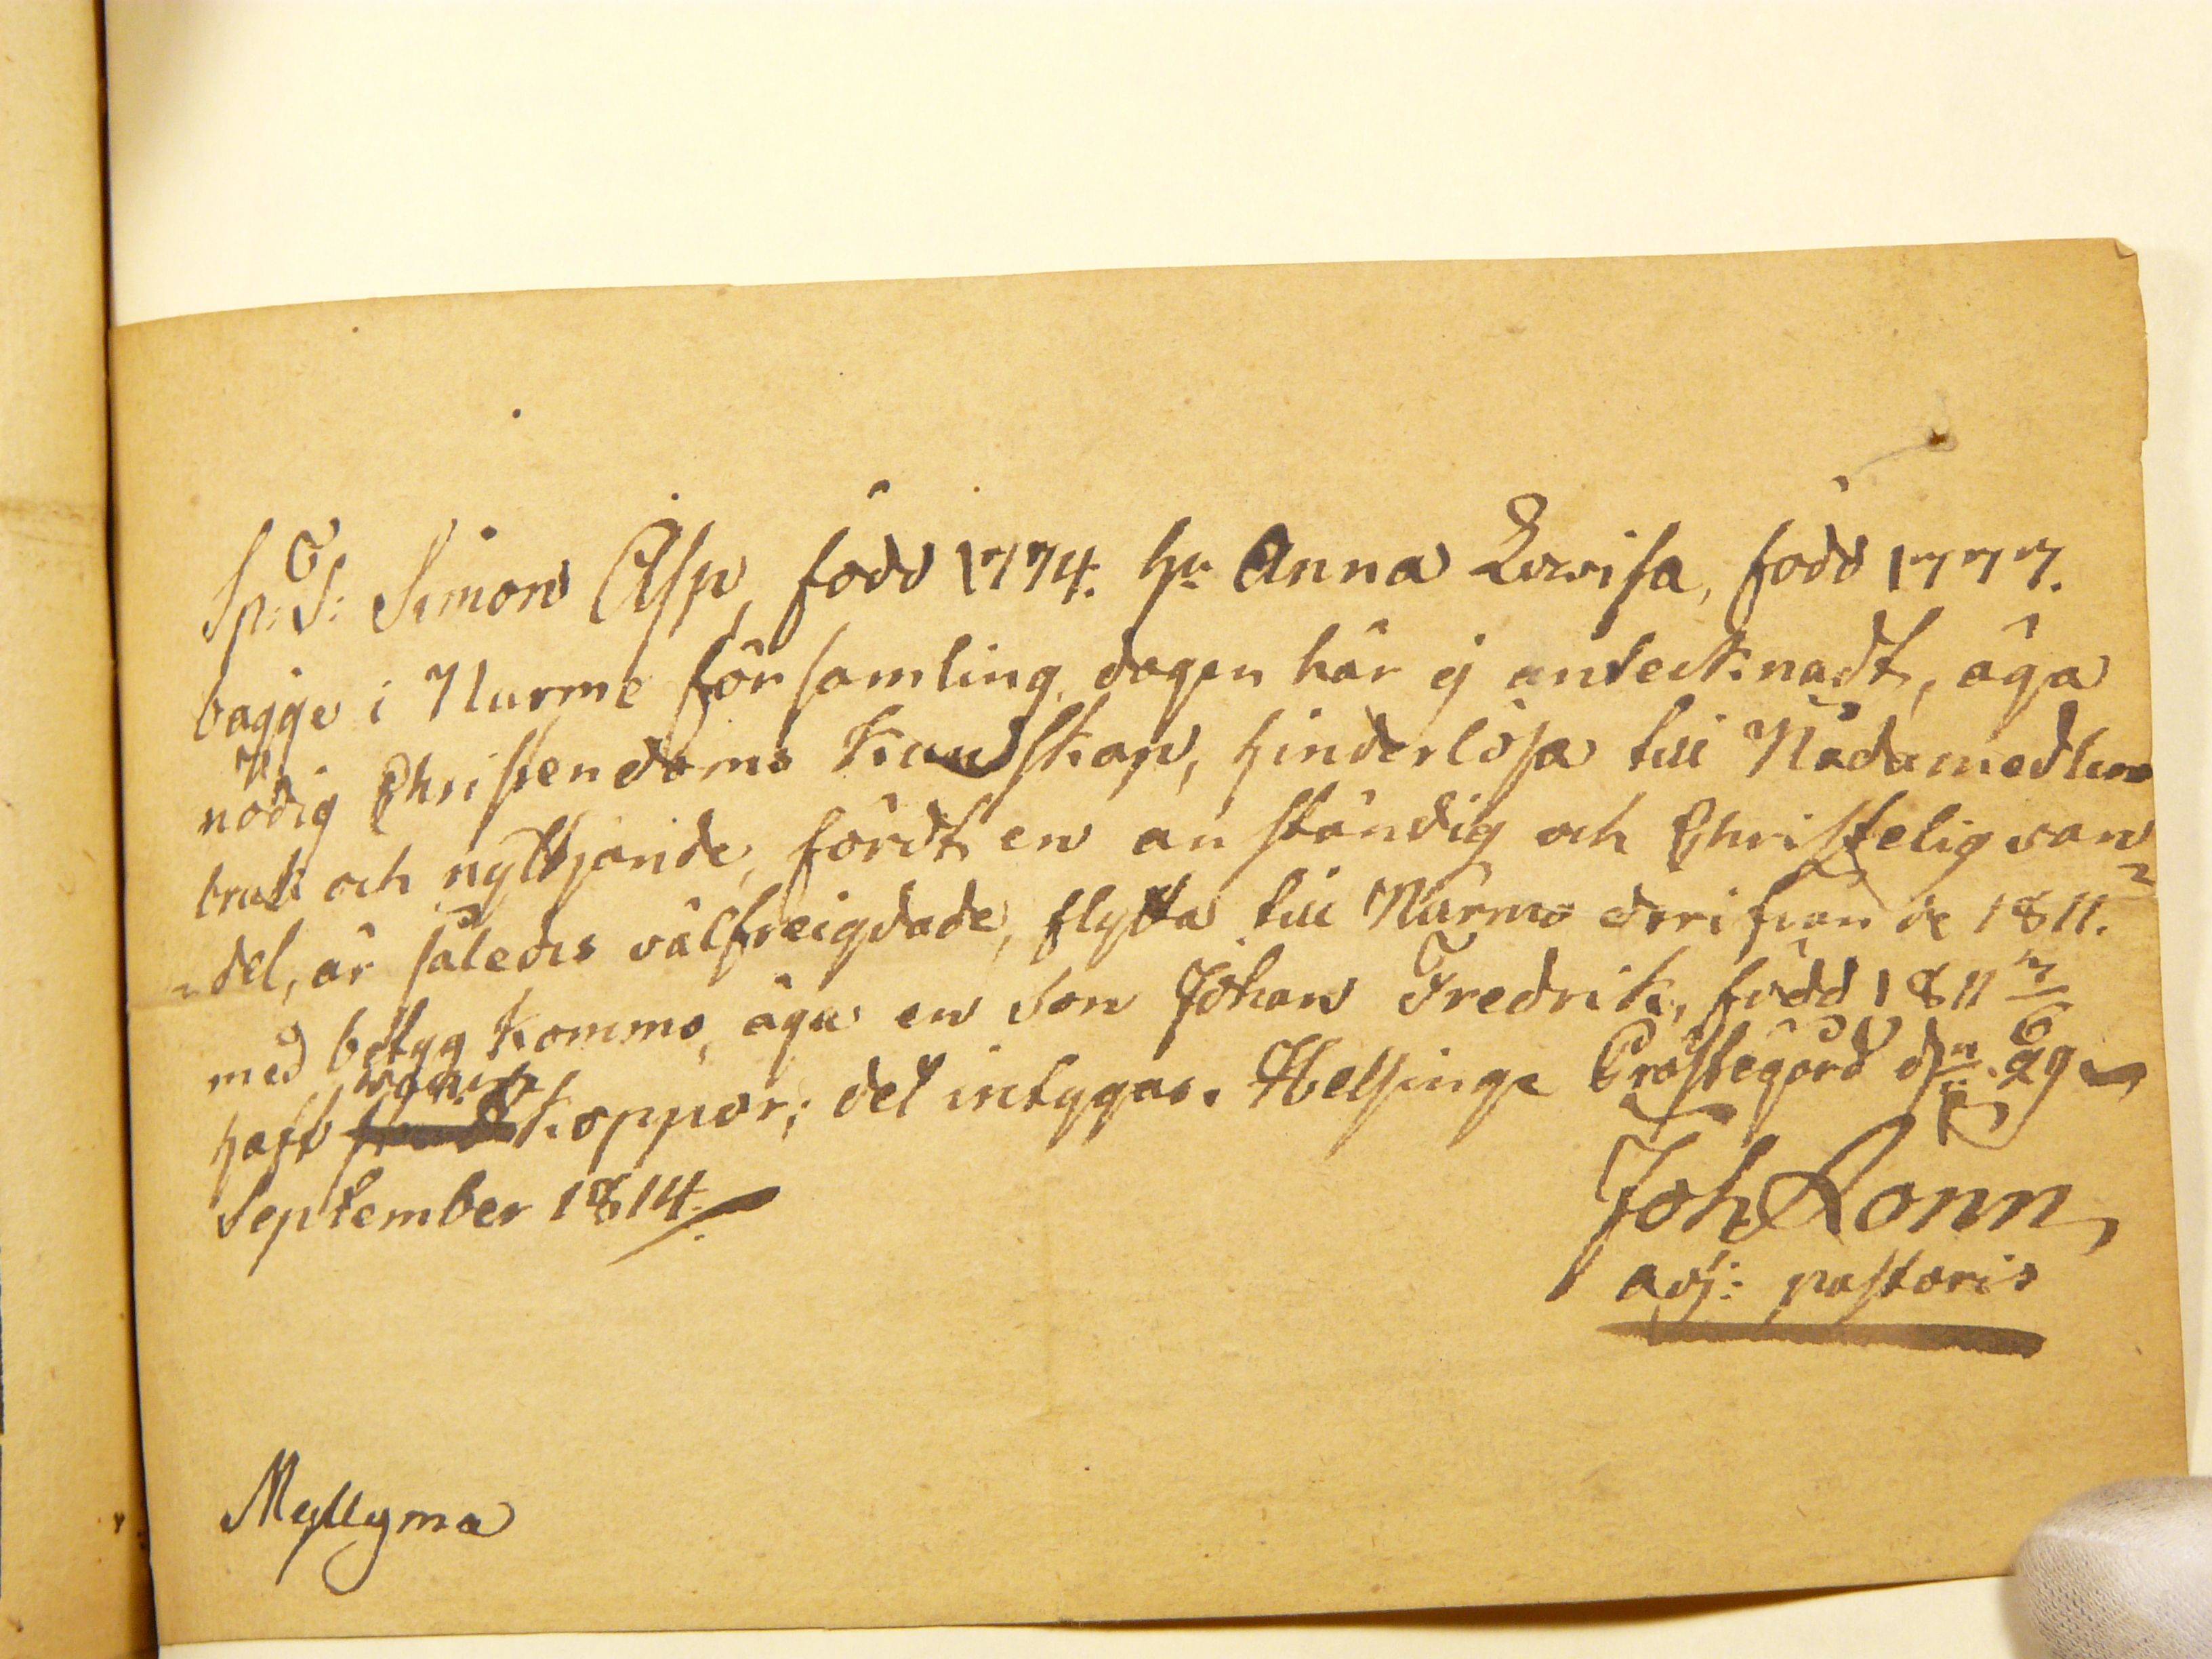 Sp: S: Simon Asp, född 1774. hu Anna Lovisa, född 1777.
bägge i Nurme församling, dagen här ej antecknadt, äga
nödig Christendoms Kundskap, hinderlösa till Nådamedlens
bruk och nyttjande, fördt en anständig och Christelig van-
-del, är således välfreigdade, flytta till Nurmo derifrån de 1811.
med betyg komme, äga en Son Johan Fredrik, född 1811
haft vacc: Koppor; det intygas. Helsinge Prästegård den 29
September 1814.
Joh Rönn
adj: pastoris
Myllyma